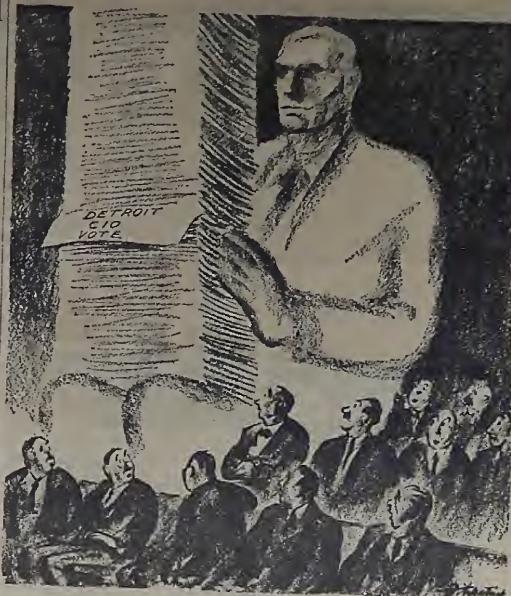 DETROIT
CIO
VOTE